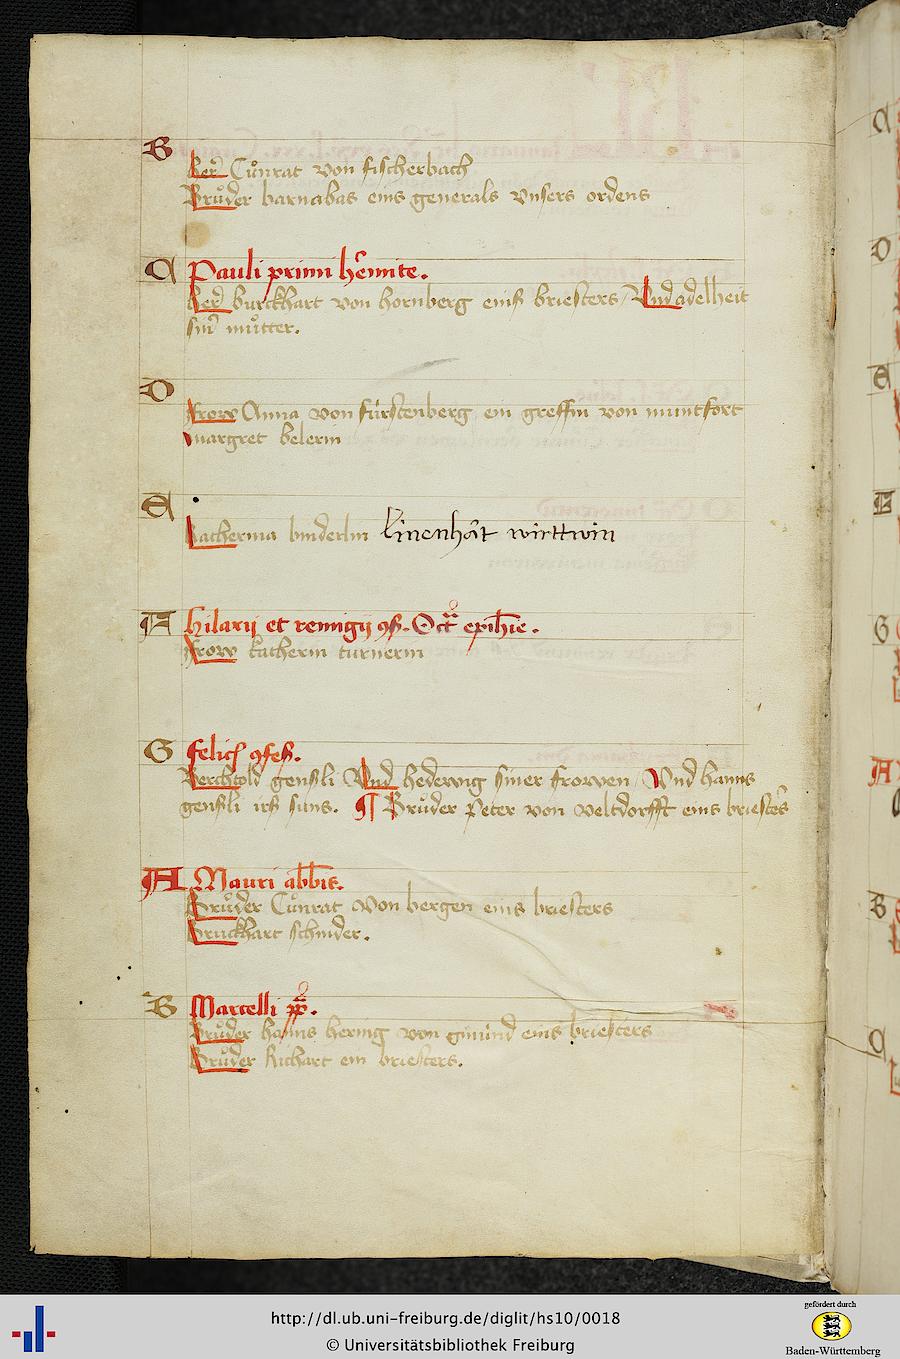 B
Her Cůnrat von fischerbach
Brůder barnabas eins generals vnsers ordens
C Pauli primi heremite.
Her burckhart von hornberg eins briesters / Vnd adelheit
sinr můtter.
D
Frow Anna von fürstenberg ein greffin von muntfort
margret belerin
E
katherina binderlin Linenhât wirttwin
F hilarij et remigij ꝯf. Oct᷑ epiph̄ie.
Frow katherin turnerin
G felicꝭ ꝯfesß.
Berchtold gensli Vnd hedewig siner frowen / Vnd hanns
gensli irs suns. ¶ Brůder Peter von veltdorfft eins briesters
A Mauri abb̄is.
Brůder Cůnrat von bergen eins briesters
Bruckhart schnider.
B Marcelli pp̄.
Brůder hanns hering von gmünd eins briesters
Brůder Richart ein briesters.
C
D
E
F
G
A
B
C
http://dl.ub.uni-freiburg.de/diglit/hs10/0018
© Universitätsbibliothek Freiburg
gefördert durch
Baden-Württemberg